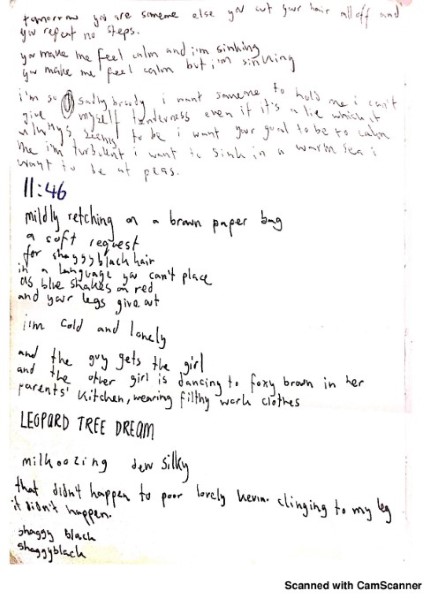 tomorrow you are someone else you cut your hair all off and
you repeat no steps.
you make me feel calm and i'm sinking
you make me feel calm but i'm sinking
i'm so sadly broody i want someone to hold me i can't
give myself tenderness even if it's a lie which it
always seems to be i want your goal to be to calm
me i'm turbulent i want to sink in a warm sea i
want to be at peas.
11:46
mildly retching on a brown paper bag
a soft request
for shaggyblack hair
in a language you can't place
as blue shakes on red
and your legs give out
i'm cold and lonely
and the guy gets the girl
and the other girl is dancing to foxy brown in her
parents' kitchen, wearing filthy work clothes
LEOPARD TREE DREAM
milkoozing dew silky
that didn't happen to poor lovely kevin clinging to my leg
it didn't happen.
shaggy black
shaggyblack
Scanned with CamScanner